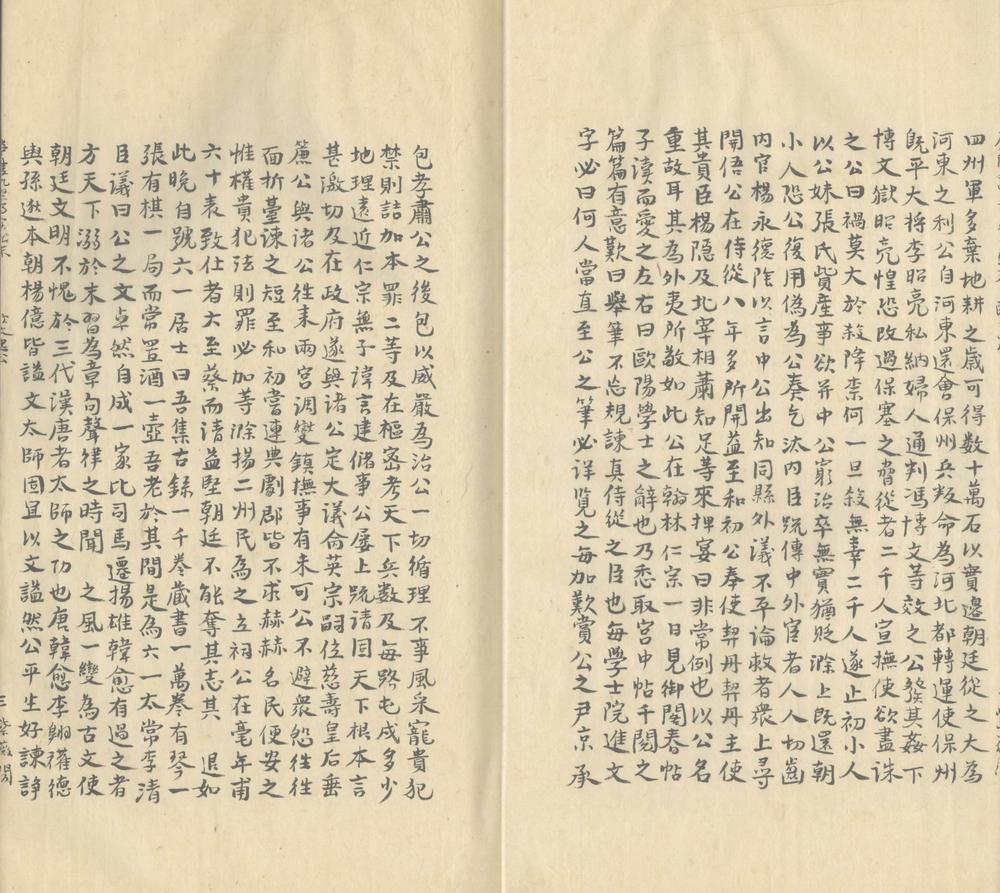 四州軍多棄地耕之歲可得数十萬石以實邊朝廷從之大為
河東之利公自河東還會保州兵叛命為河北都轉運使保州
旣平大将李昭亮私納婦人通判馮博文等效之公發其姦下
博文獄昭亮惶恐改過保塞之脅從者二千人宣撫使欲盡誅
之公曰禍莫大於殺降柰何一旦殺無辜二千人遂止初小人
以公妹張氏貲產事欲并中公窮治卒無實猶貶滁上旣還朝
小人恐公復用偽為公奏乞汰内臣䟽傳中外宦者人人切齒
内官楊永德隂以言中公出知同縣外議不平論救者衆上尋
開悟公在侍從八年多所開益至和初公奉使契丹契丹主使
其貴臣楊隱及北宰相蕭知足等來押宴曰非常例也以公名
重故耳其為外夷所敬如此公在翰林仁宗一日見御閣春帖
子讀而愛之左右曰歐陽學士之辭也乃悉取宮中帖千閱之
篇篇有意歎曰舉筆不忘規諫真侍從之臣也每學士院進文
字必曰何人當直至公之筆必详覧之每加歎賞公之尹京承
包孝肅公之後包以威嚴為治公一切循理不事風采寵貴犯
禁則詰加本罪二等及在樞密考天下兵数及每路屯戍多少
地理遠近仁宗無子諱言建儲事公屡上䟽請因天下根本言
甚激切及在政府遂與諸公定大議命英宗嗣位慈壽皇后垂
簾公與諸公徃来兩宮調變鎮撫事有未可公不避衆怨徃徃
面折臺諫之短至和初嘗連典劇郡皆不求赫赫名民便安之
惟權貴犯法則罪必加等滁揚二州民為之立祠公在亳年甫
六十表致仕者大至蔡而请益堅朝廷不能奪其志其 退如
此晚自號六一居士曰吾集古録一千卷藏書一萬卷有琴一
張有棋一局而常置酒一壺吾老於其間是為六一太常李清
臣議曰公之文卓然自成一家比司馬遷揚雄韓愈有過之者
方天下溺於末習為章句聲律之時聞 之風一變為古文使
朝廷文明不愧於三代漢唐者太師之功也唐韓愈李翱權德
輿孫逖本朝楊億皆謚文太師固且以文謚然公平生好諫諍